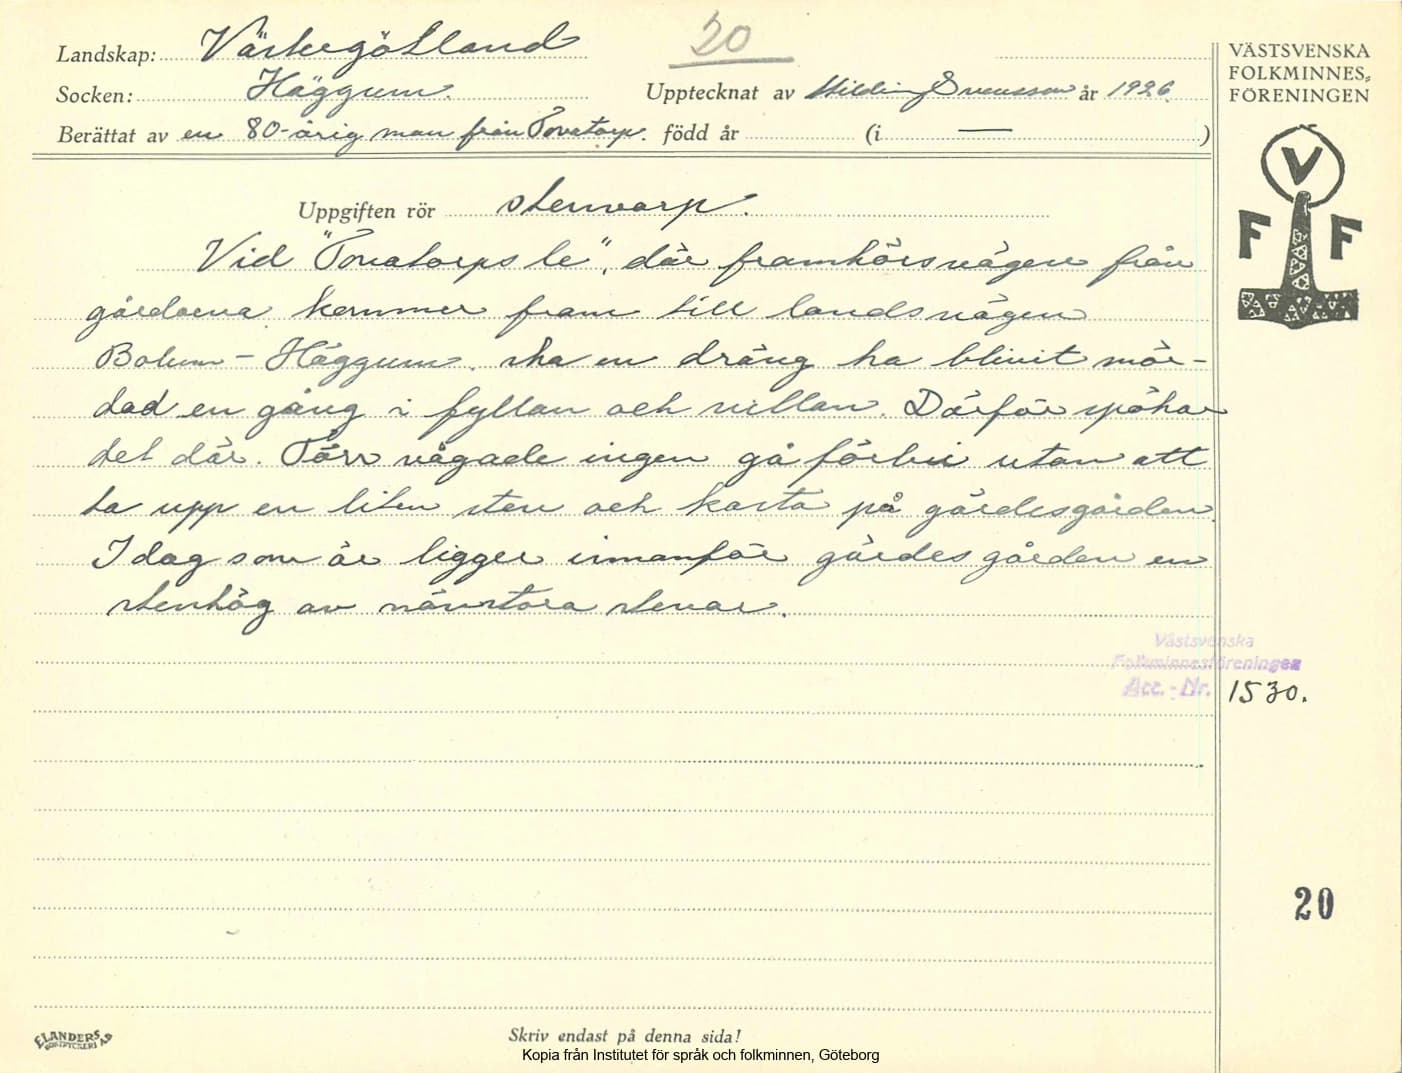 20
Landskap: Västergötland
Socken: Häggum. Upptecknat av Hilding Svensson år 1926.
Berättat av en 80-årig man från Tovatorp. född år (i — )
VÄSTSVENSKA
FOLKMINNES-
FÖRENINGEN
V
F F
Uppgiften rör stenvarp.
Vid "Tovatorps le", där framkörsvägen från
gårdarna kommer fram till landsvägen
Bolum - Häggum, ska en dräng ha blivit mör-
dad en gång i fyllan och villan. Därför spökar
det där. Förr vågade ingen gå förbi utan att
ta upp en liten sten och kasta på gärdesgården.
I dag som är ligger innanför gärdesgården en
stenhög av nävstora stenar.
Västsvenska
Folkminnesföreningen
Acc. - Nr. 1530.
20
ELANDERS
BOKTRYCKERI A.B
Skriv endast på denna sida!
Kopia från Institutet för språk och folkminnen, Göteborg